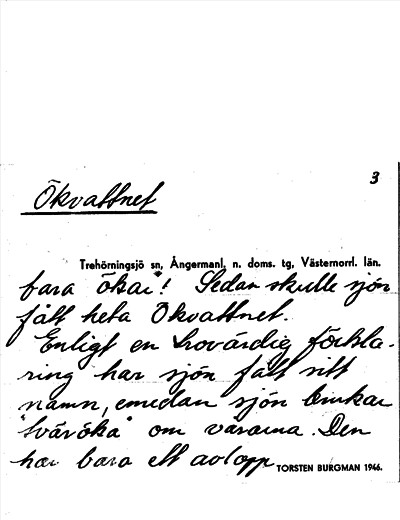 3
Ökvattnet
Trehörningsjö sn, Ångermanl. n. doms. tg, Västernorrl. län.
bara ökar"! Sedan skulle sjön
fått heta Ökvattnet.
Enligt en trovärdig förkla-
ring har sjön fått sitt
namn, emedan sjön brukar
"svåröka" om vårarna. Den
har bara ett avlopp
TORSTEN BURGMAN 1946.